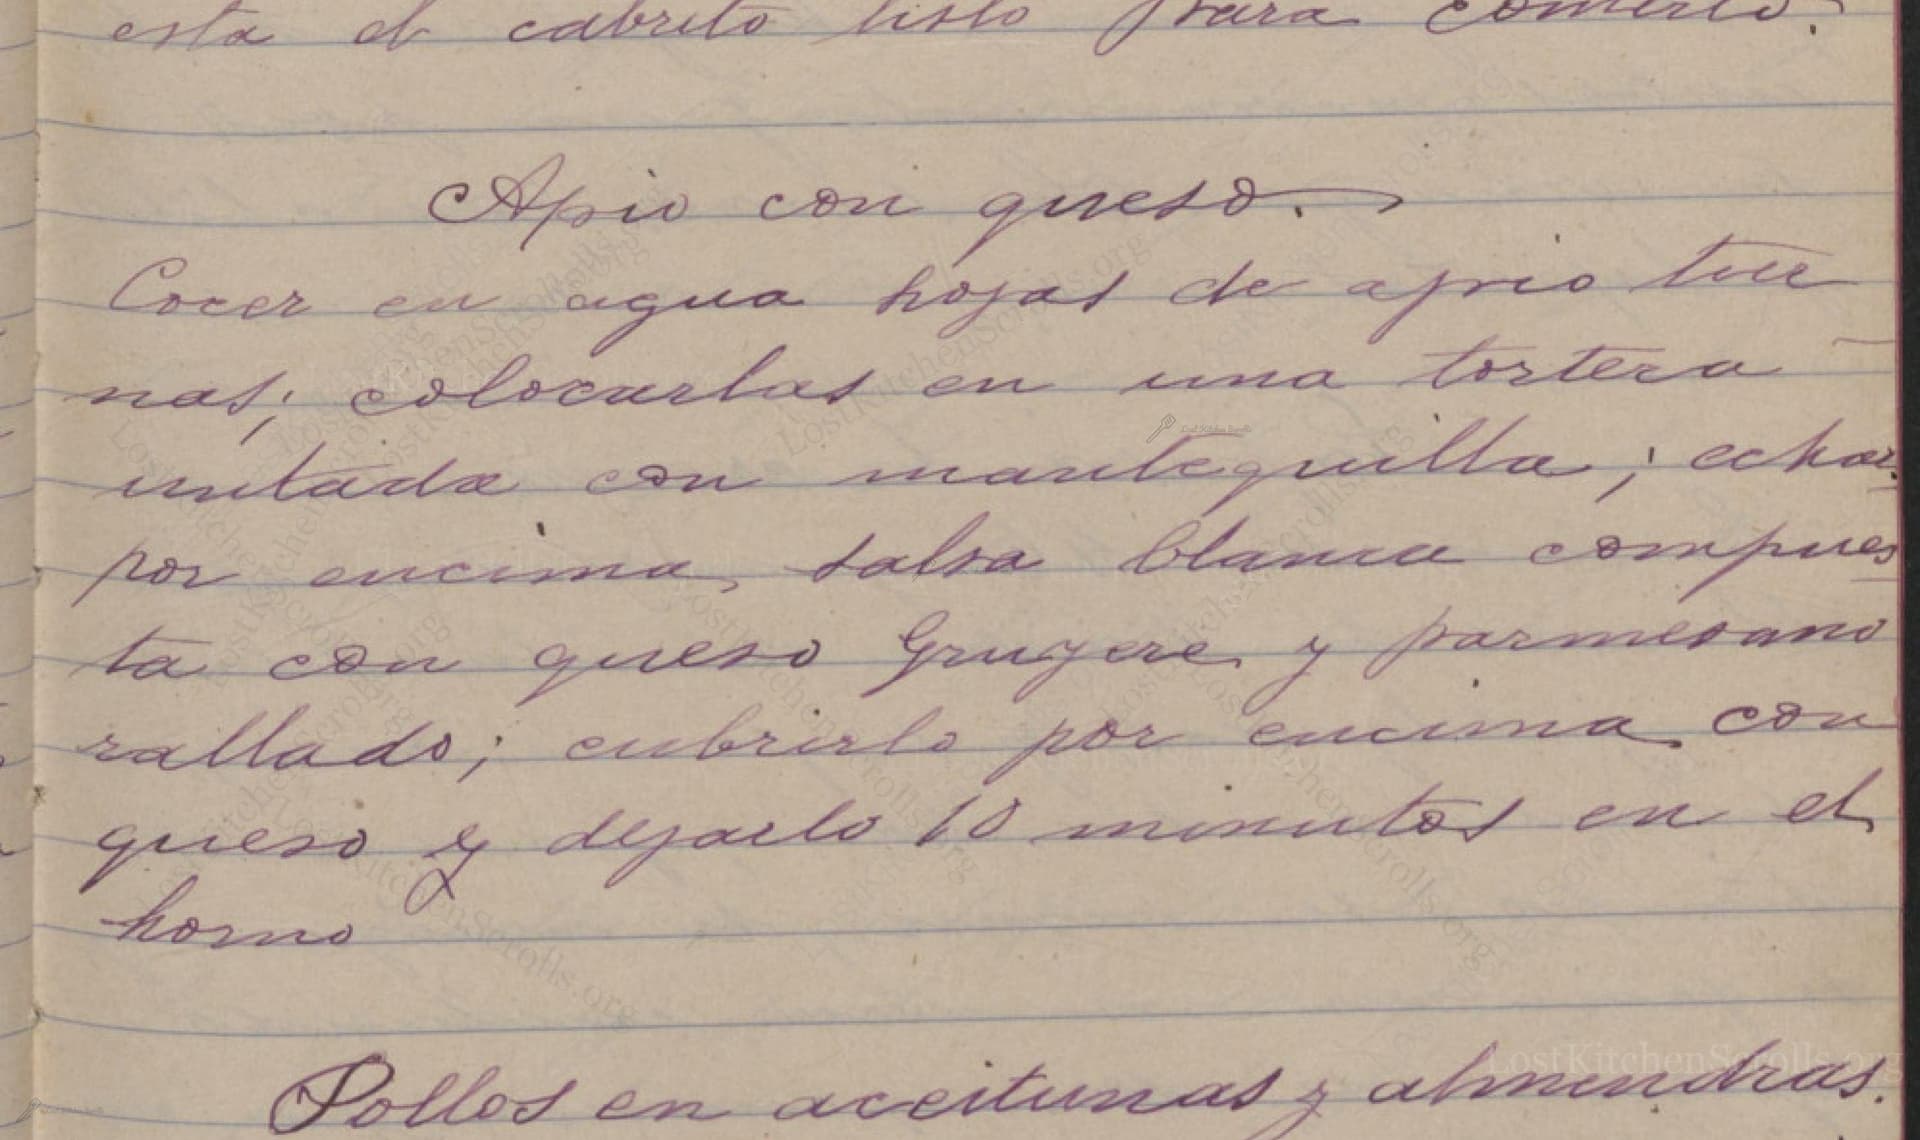 esta el cabrito listo para comerlo.
Apio con queso.
Cocer en agua hojas de apio tier
nas; colocarlas en una tortera
untada con mantequilla; echar
por encima, salsa blanca compues
ta con queso Gruyere y parmesano
rallado; cubrirlo por encima con
queso y dejarlo 10 minutos en el
horno
Pollos en aceitunas y almendras.
LostKitchenScrolls.org